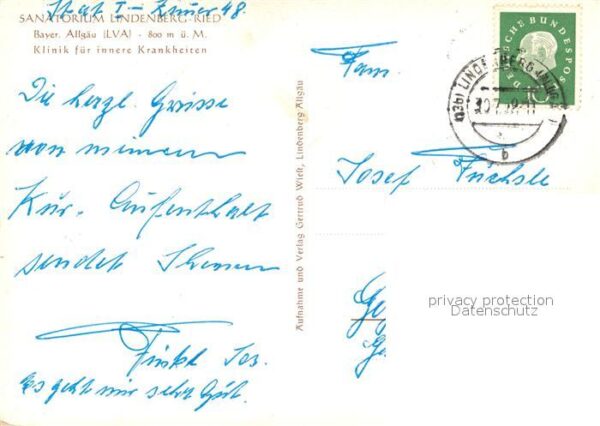 Stat. I - Zimmer 48.
SANATORIUM LINDENBERG-RIED
Bayer. Allgäu (LVA) - 800 m ü. M.
Klinik für innere Krankheiten
Die herzl. Grüsse
von meinem
Kur. Aufenthalt
sendet Ihnen
Jos.
Es geht mir sehr Gut.
Aufnahme und Verlag Gertrud Wiek, Lindenberg Allgäu
Fam.
Josef Füchsle
DEUTSCHE BUNDESPOST
10
LINDENBERG
b
privacy protection
Datenschutz